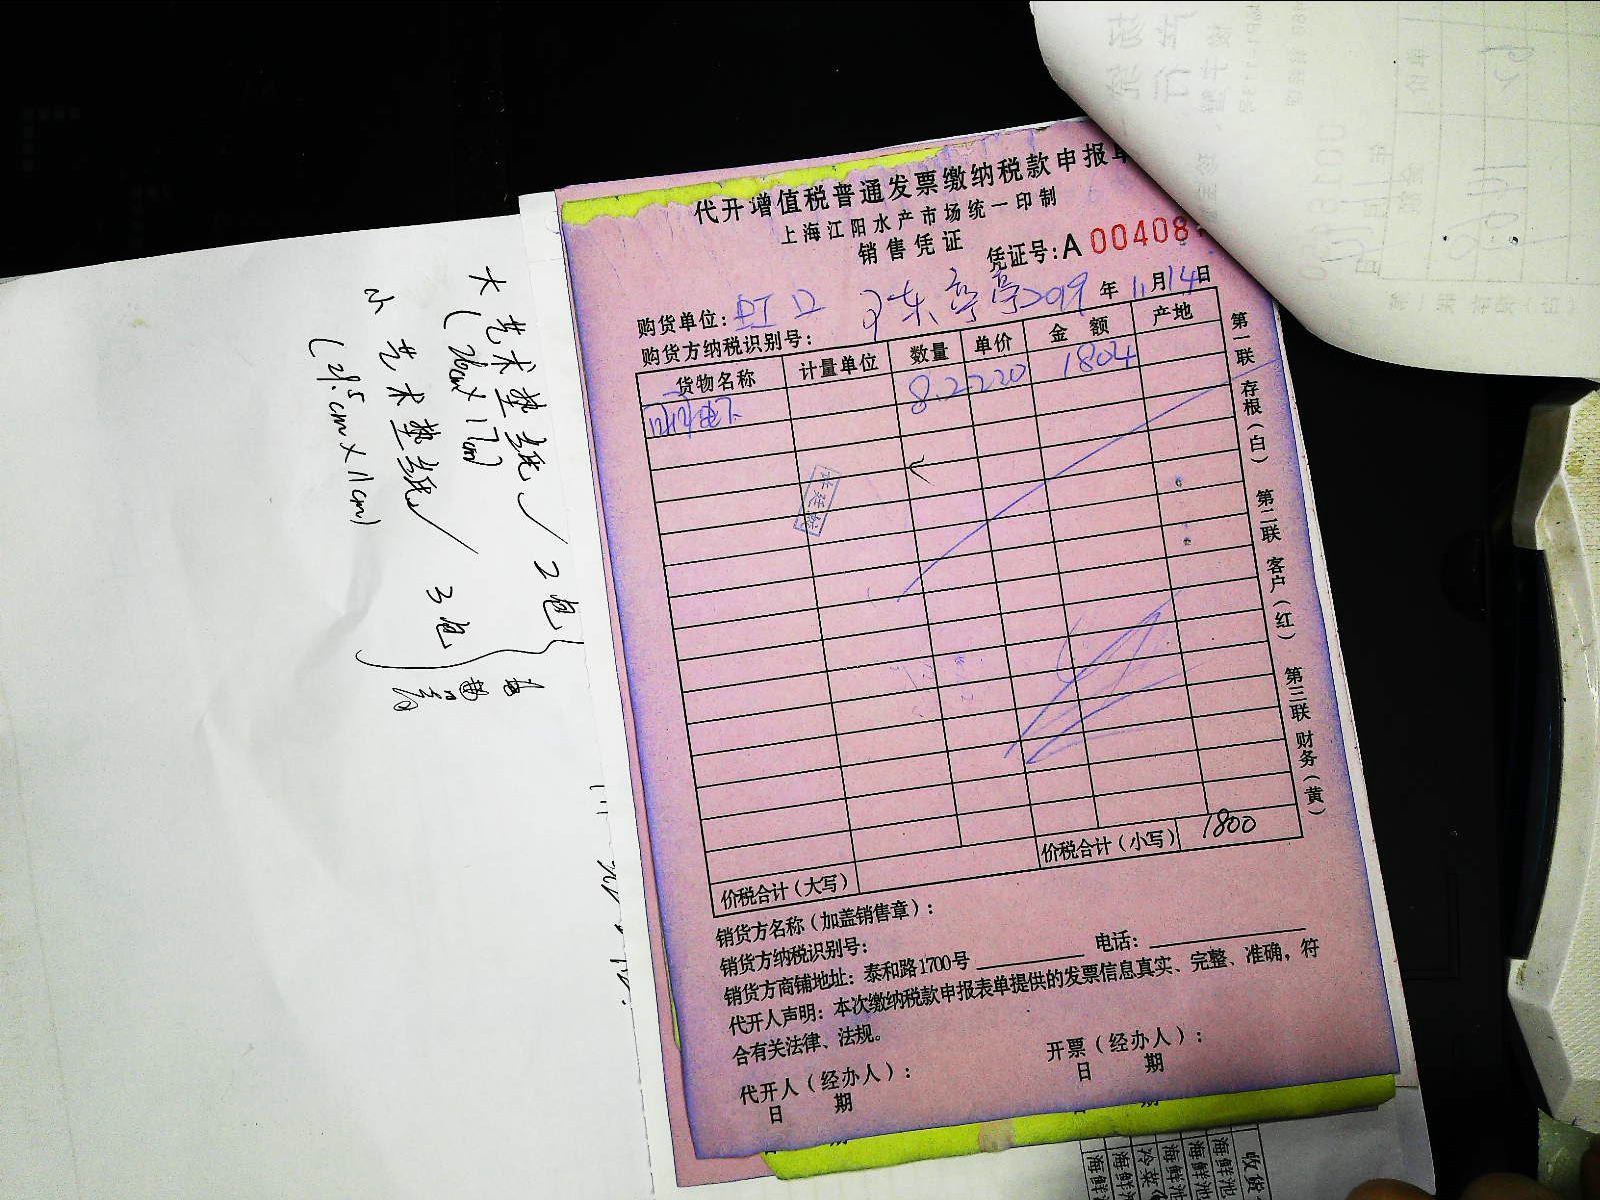 代开增值税普通发票缴纳税款申报单
上海江阳水产市场统一印制
销售凭证
凭证号:A 00408
购货单位: 虹口 亭亭 2019 年 11月14日
购货方纳税识别号:
货物名称 计量单位 数量 单价 金额 产地
8.2 220 1804
价税合计(大写) 价税合计(小写) 1800
销货方名称(加盖销售章):
销货方纳税识别号:
销货方商铺地址: 泰和路1700号 电话:
代开人声明: 本次缴纳税款申报表单提供的发票信息真实、完整、准确,符
合有关法律、法规。
代开人(经办人): 开票(经办人):
日 期 日 期
第一联 存根(白) 第二联 客户(红) 第三联 财务(黄)
大艺术垫纸 2包
(26cm×17cm)
小艺术垫纸 3包
(21.5cm×11cm)
收货
海鲜池
海鲜池
海鲜池
冷菜
海鲜池
海鲜